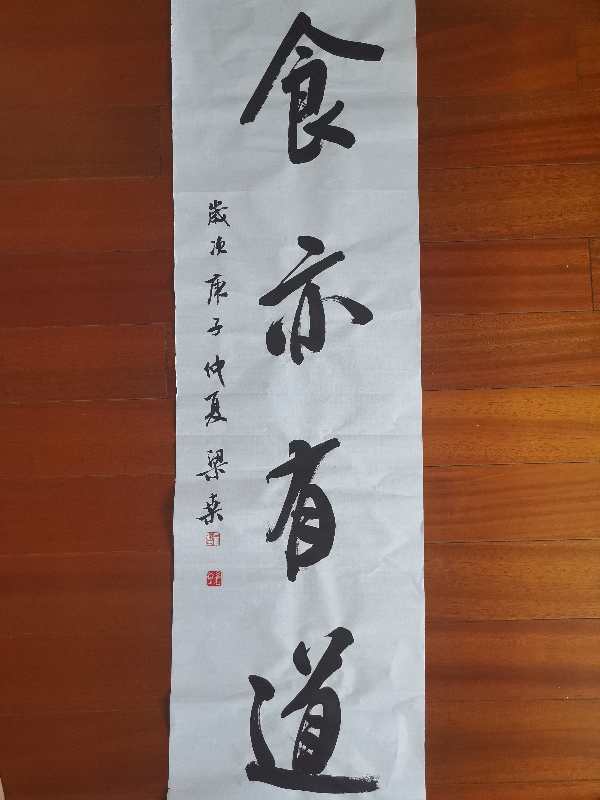 食亦有道
歲次庚子仲夏梁燊